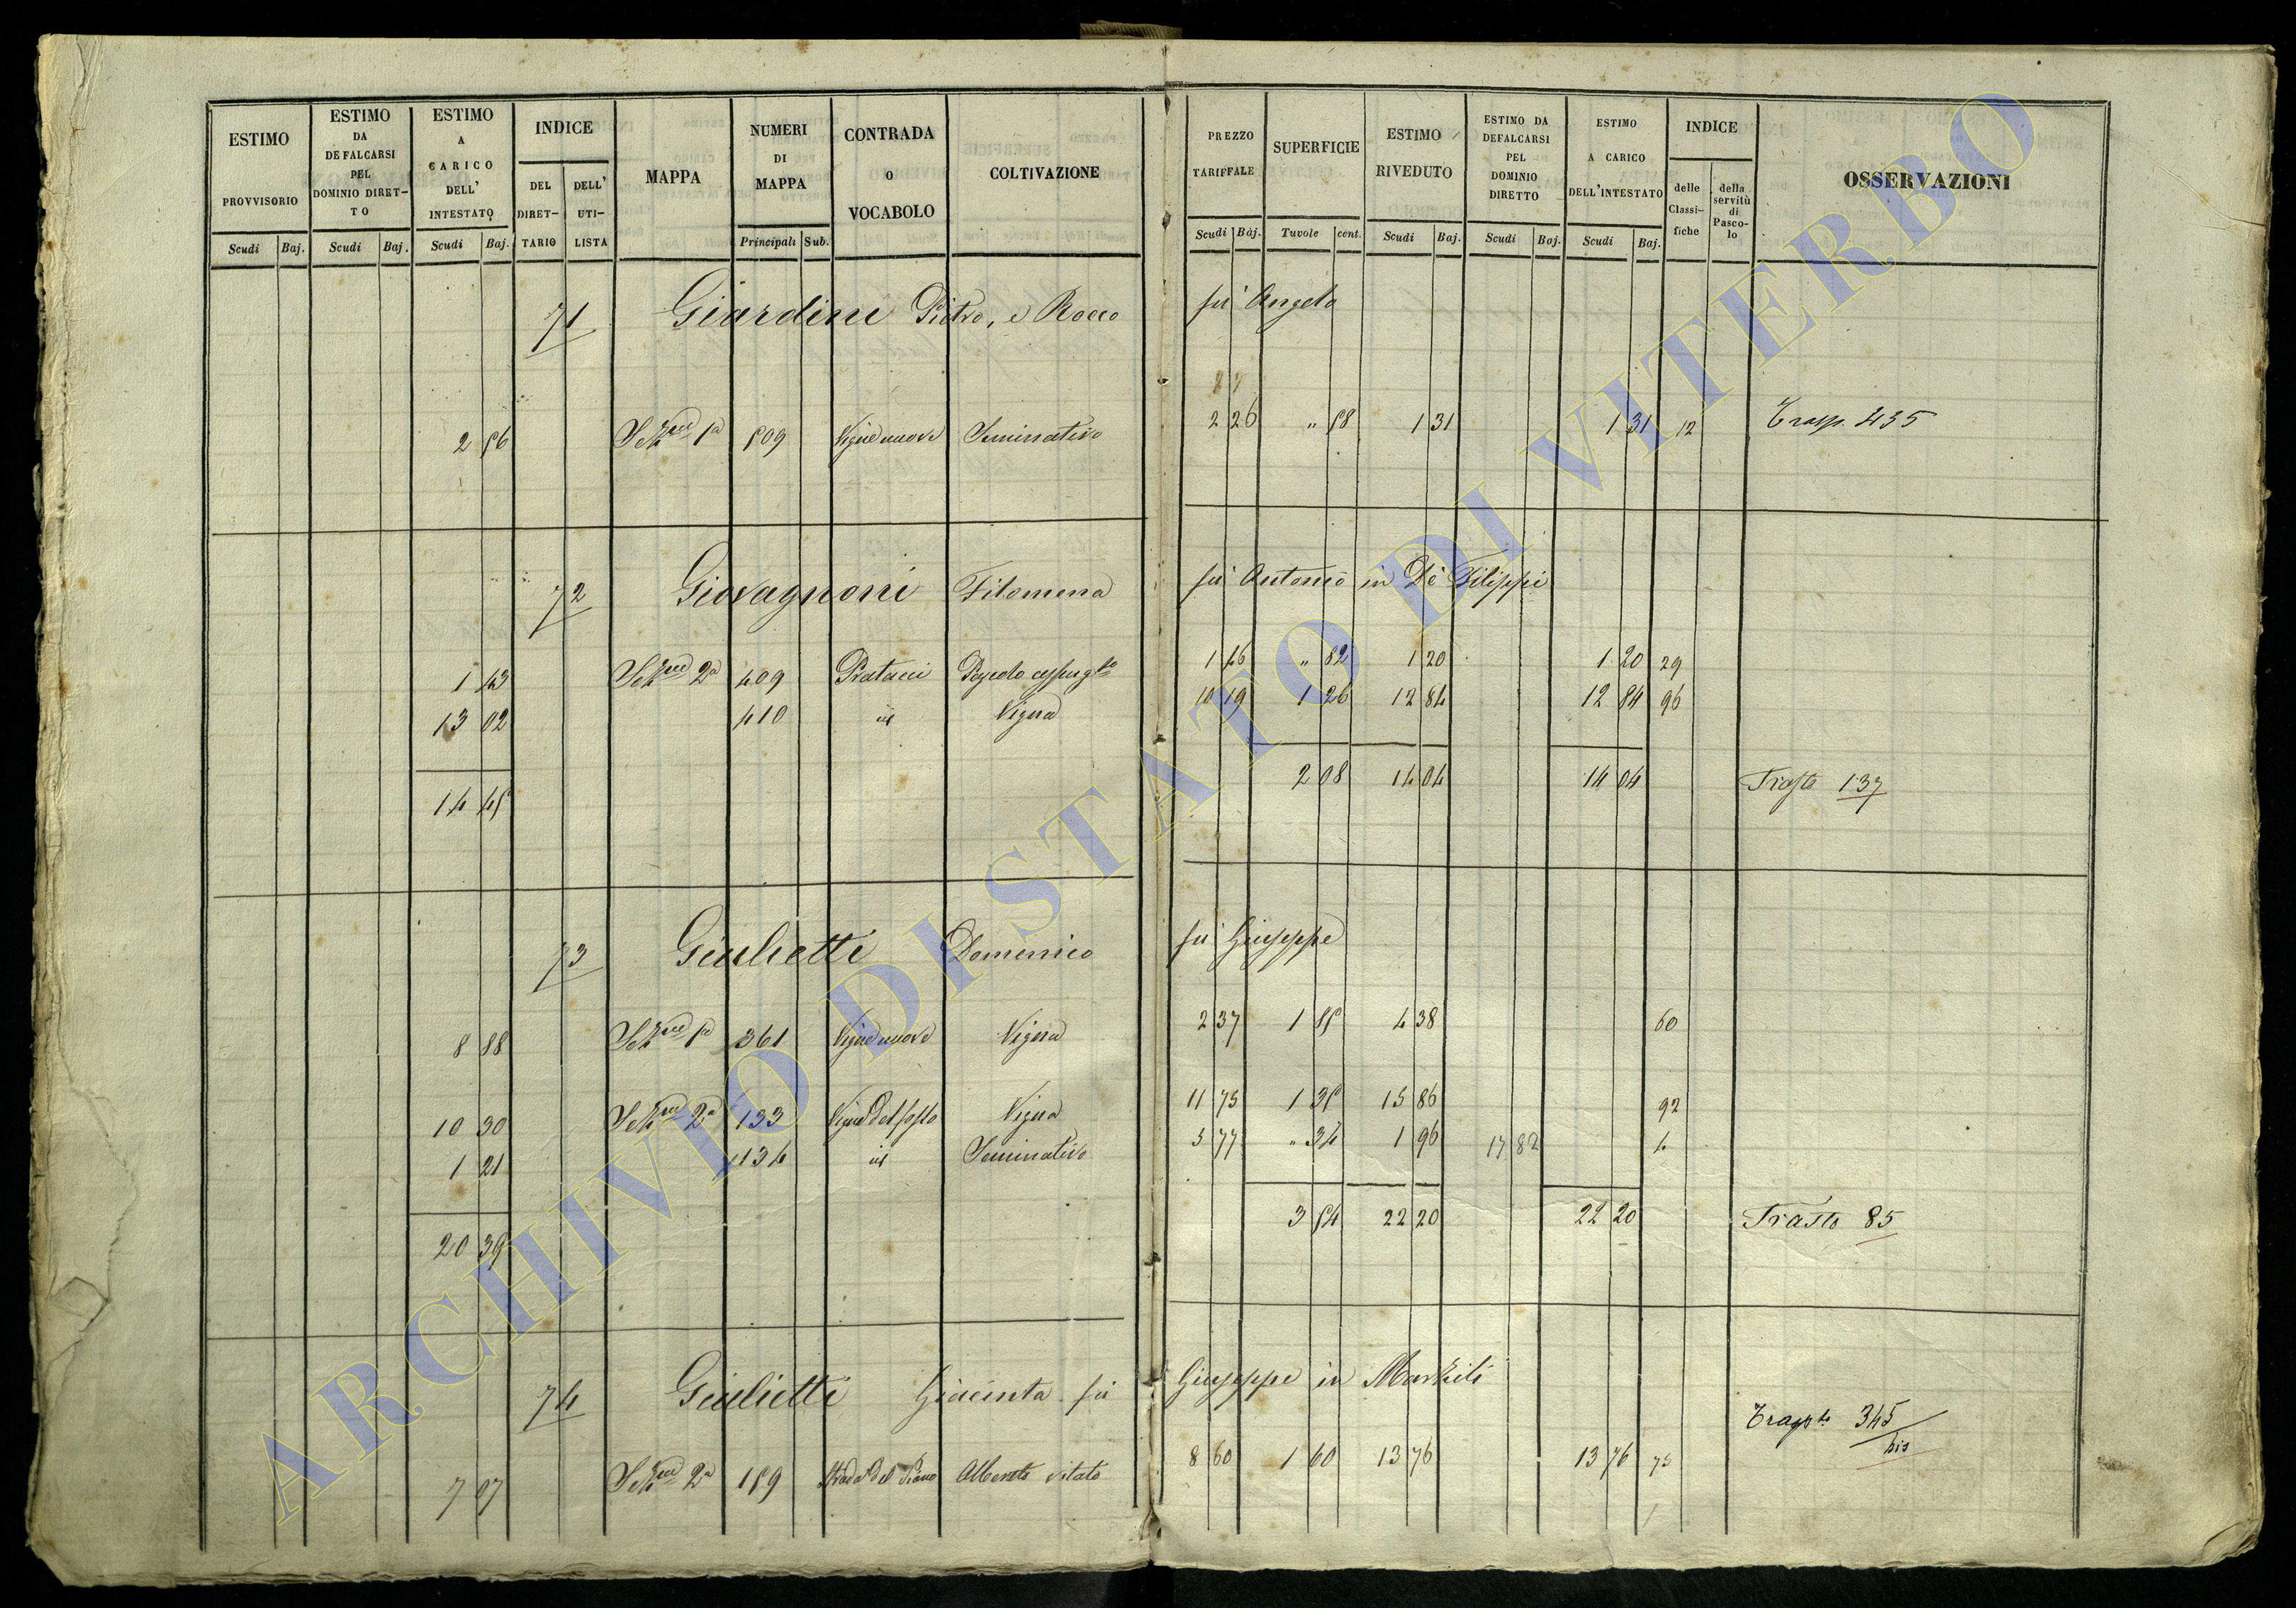 ESTIMO PROVVISORIO | ESTIMO DA DEFALCARSI PEL DOMINIO DIRETTO | ESTIMO A CARICO DELL' INTESTATO | INDICE DEL DIRETTARIO | DELL' UTILISTA | MAPPA | NUMERI DI MAPPA | CONTRADA O VOCABOLO | COLTIVAZIONE | PREZZO TARIFFALE | SUPERFICIE | ESTIMO RIVEDUTO | ESTIMO DA DEFALCARSI PEL DOMINIO DIRETTO | ESTIMO A CARICO DELL'INTESTATO | INDICE delle Classifiche | della servitù di Pascolo | OSSERVAZIONI
Scudi Baj. | Scudi Baj. | Scudi Baj. | Principali Sub. | Scudi Baj. | Tavole cent. | Scudi Baj. | Scudi Baj. | Scudi Baj.
71 Giardini Pietro, e Rocco fu Angelo
2 56 Sezne 1a 509 Vigne nuove Seminativo 2 26 " 58 1 31 1 31 12 Trasp. 435
72 Giovagnoni Filomena fu Antonio in De Filippi
1 43 Sezne 2a 409 Pratacci 1 46 " 82 1 20 1 20 29
13 02 410 id Vigna 10 19 1 26 12 84 12 84 96
14 45 2 08 14 04 14 04 Trasto 137
73 Giulietti Domenico fu Giuseppe
8 88 Sezne 1a 361 Vigne nuove Vigna 2 37 1 85 4 38 60
10 30 Sezne 2a 133 Vigna 11 75 1 35 15 86 92
1 21 134 id Seminativo 5 77 " 34 1 96 17 82 4
20 39 3 54 22 20 22 20 Trasto 85
74 Giulietti Giacinta fu Giuseppe in Markiti
Traspto 345 bis
7 07 Sezne 2a 159 Strada del Piano Alberato vitato 8 60 1 60 13 76 13 76 75
ARCHIVIO DI STATO DI VITERBO